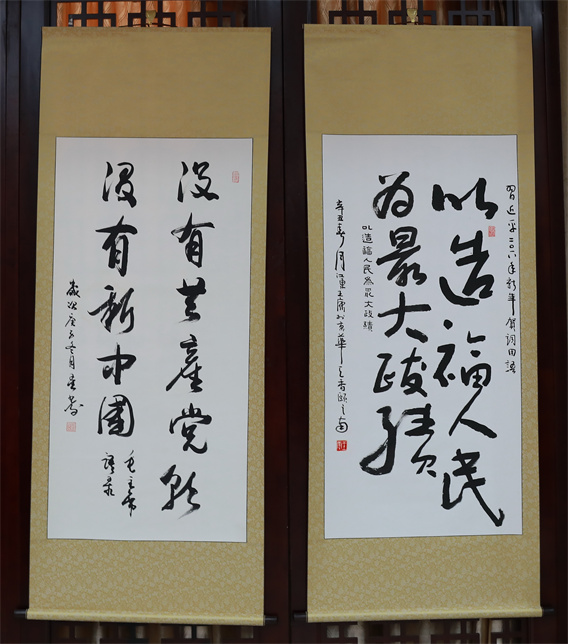 習近平二〇一八年新年賀詞
以造福人民
为最大政績
以造福人民為最大政績
辛丑春月
没有共產党就
没有新中國
毛主席
語录
歲次庚子冬月